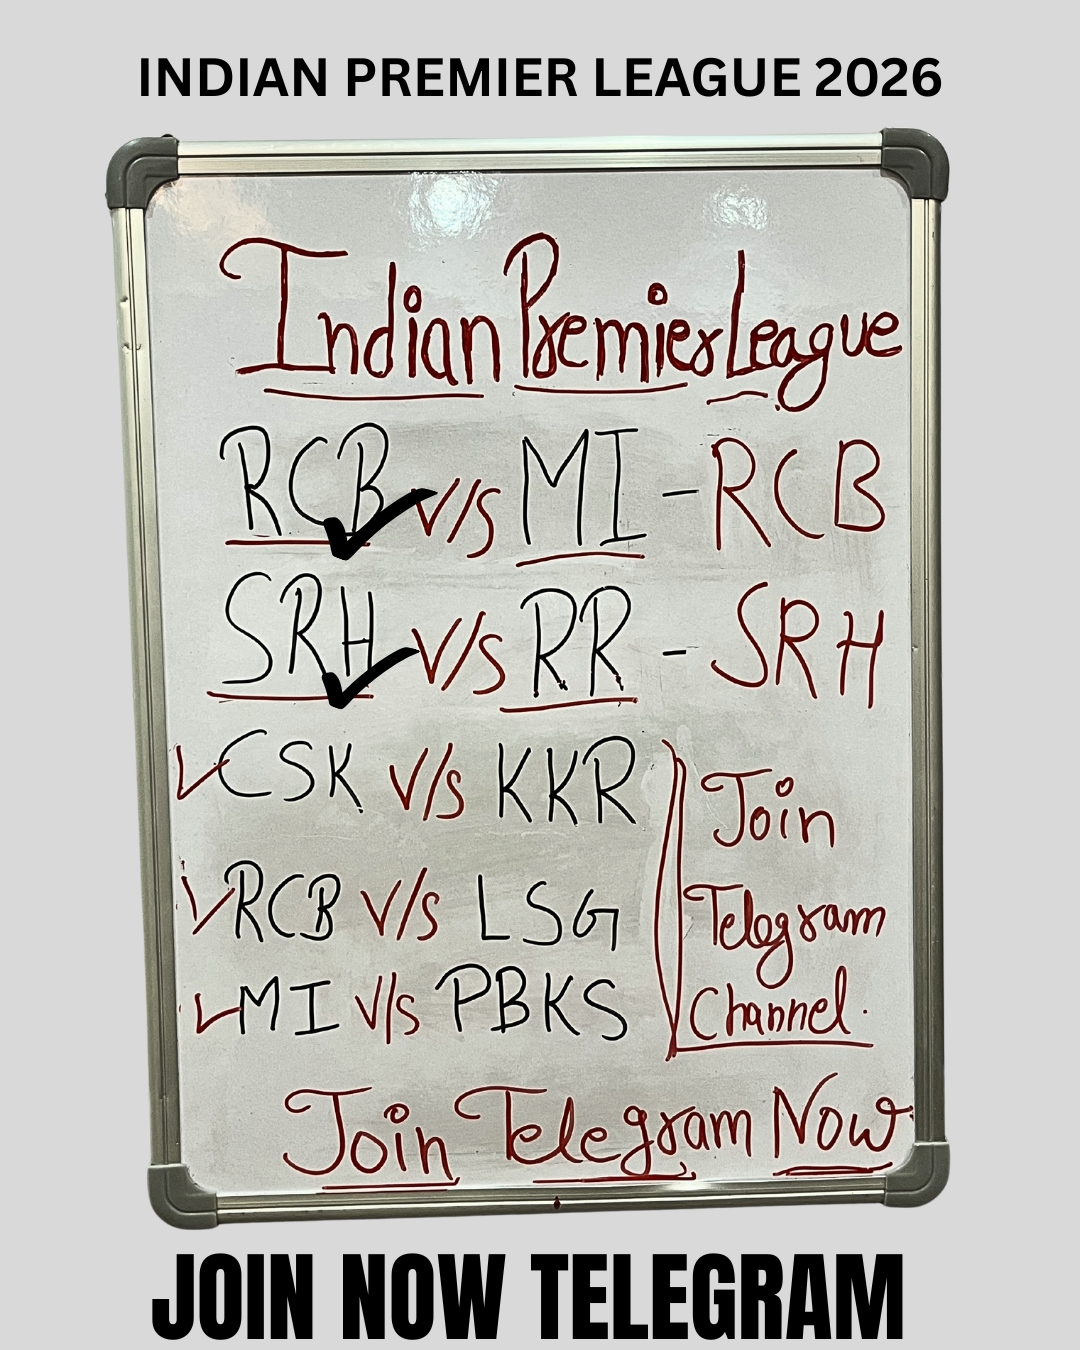 INDIAN PREMIER LEAGUE 2026
Indian Premier League
RCB v/s MI - RCB
SRH v/s RR - SRH
CSK v/s KKR
RCB v/s LSG
MI v/s PBKS
Join
Telegram
Channel.
Join Telegram Now
JOIN NOW TELEGRAM